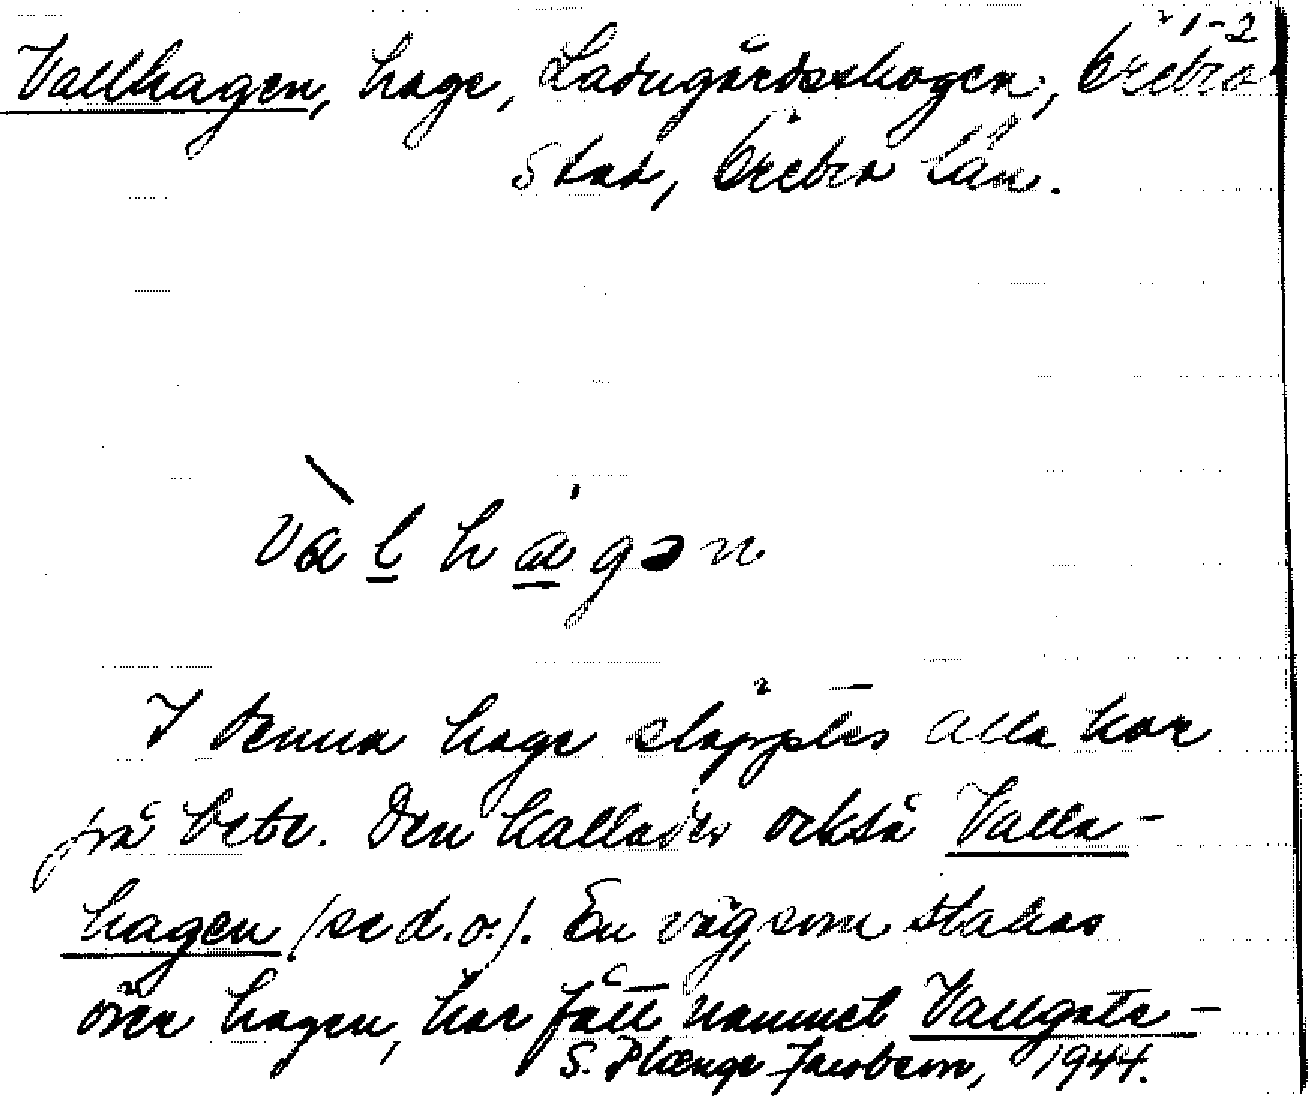 1-2
Vallhagen, hage, Ladugårdsskogen, Örebro
Stad, Örebro län.
vàl hágən
I denna hage släpptes alla kor
på bete. Den kallades också Valla-
hagen (se d. o.). En väg, som stakas
över hagen, har fått namnet Vallgats-
S. Plænge Jacobson, 1944.